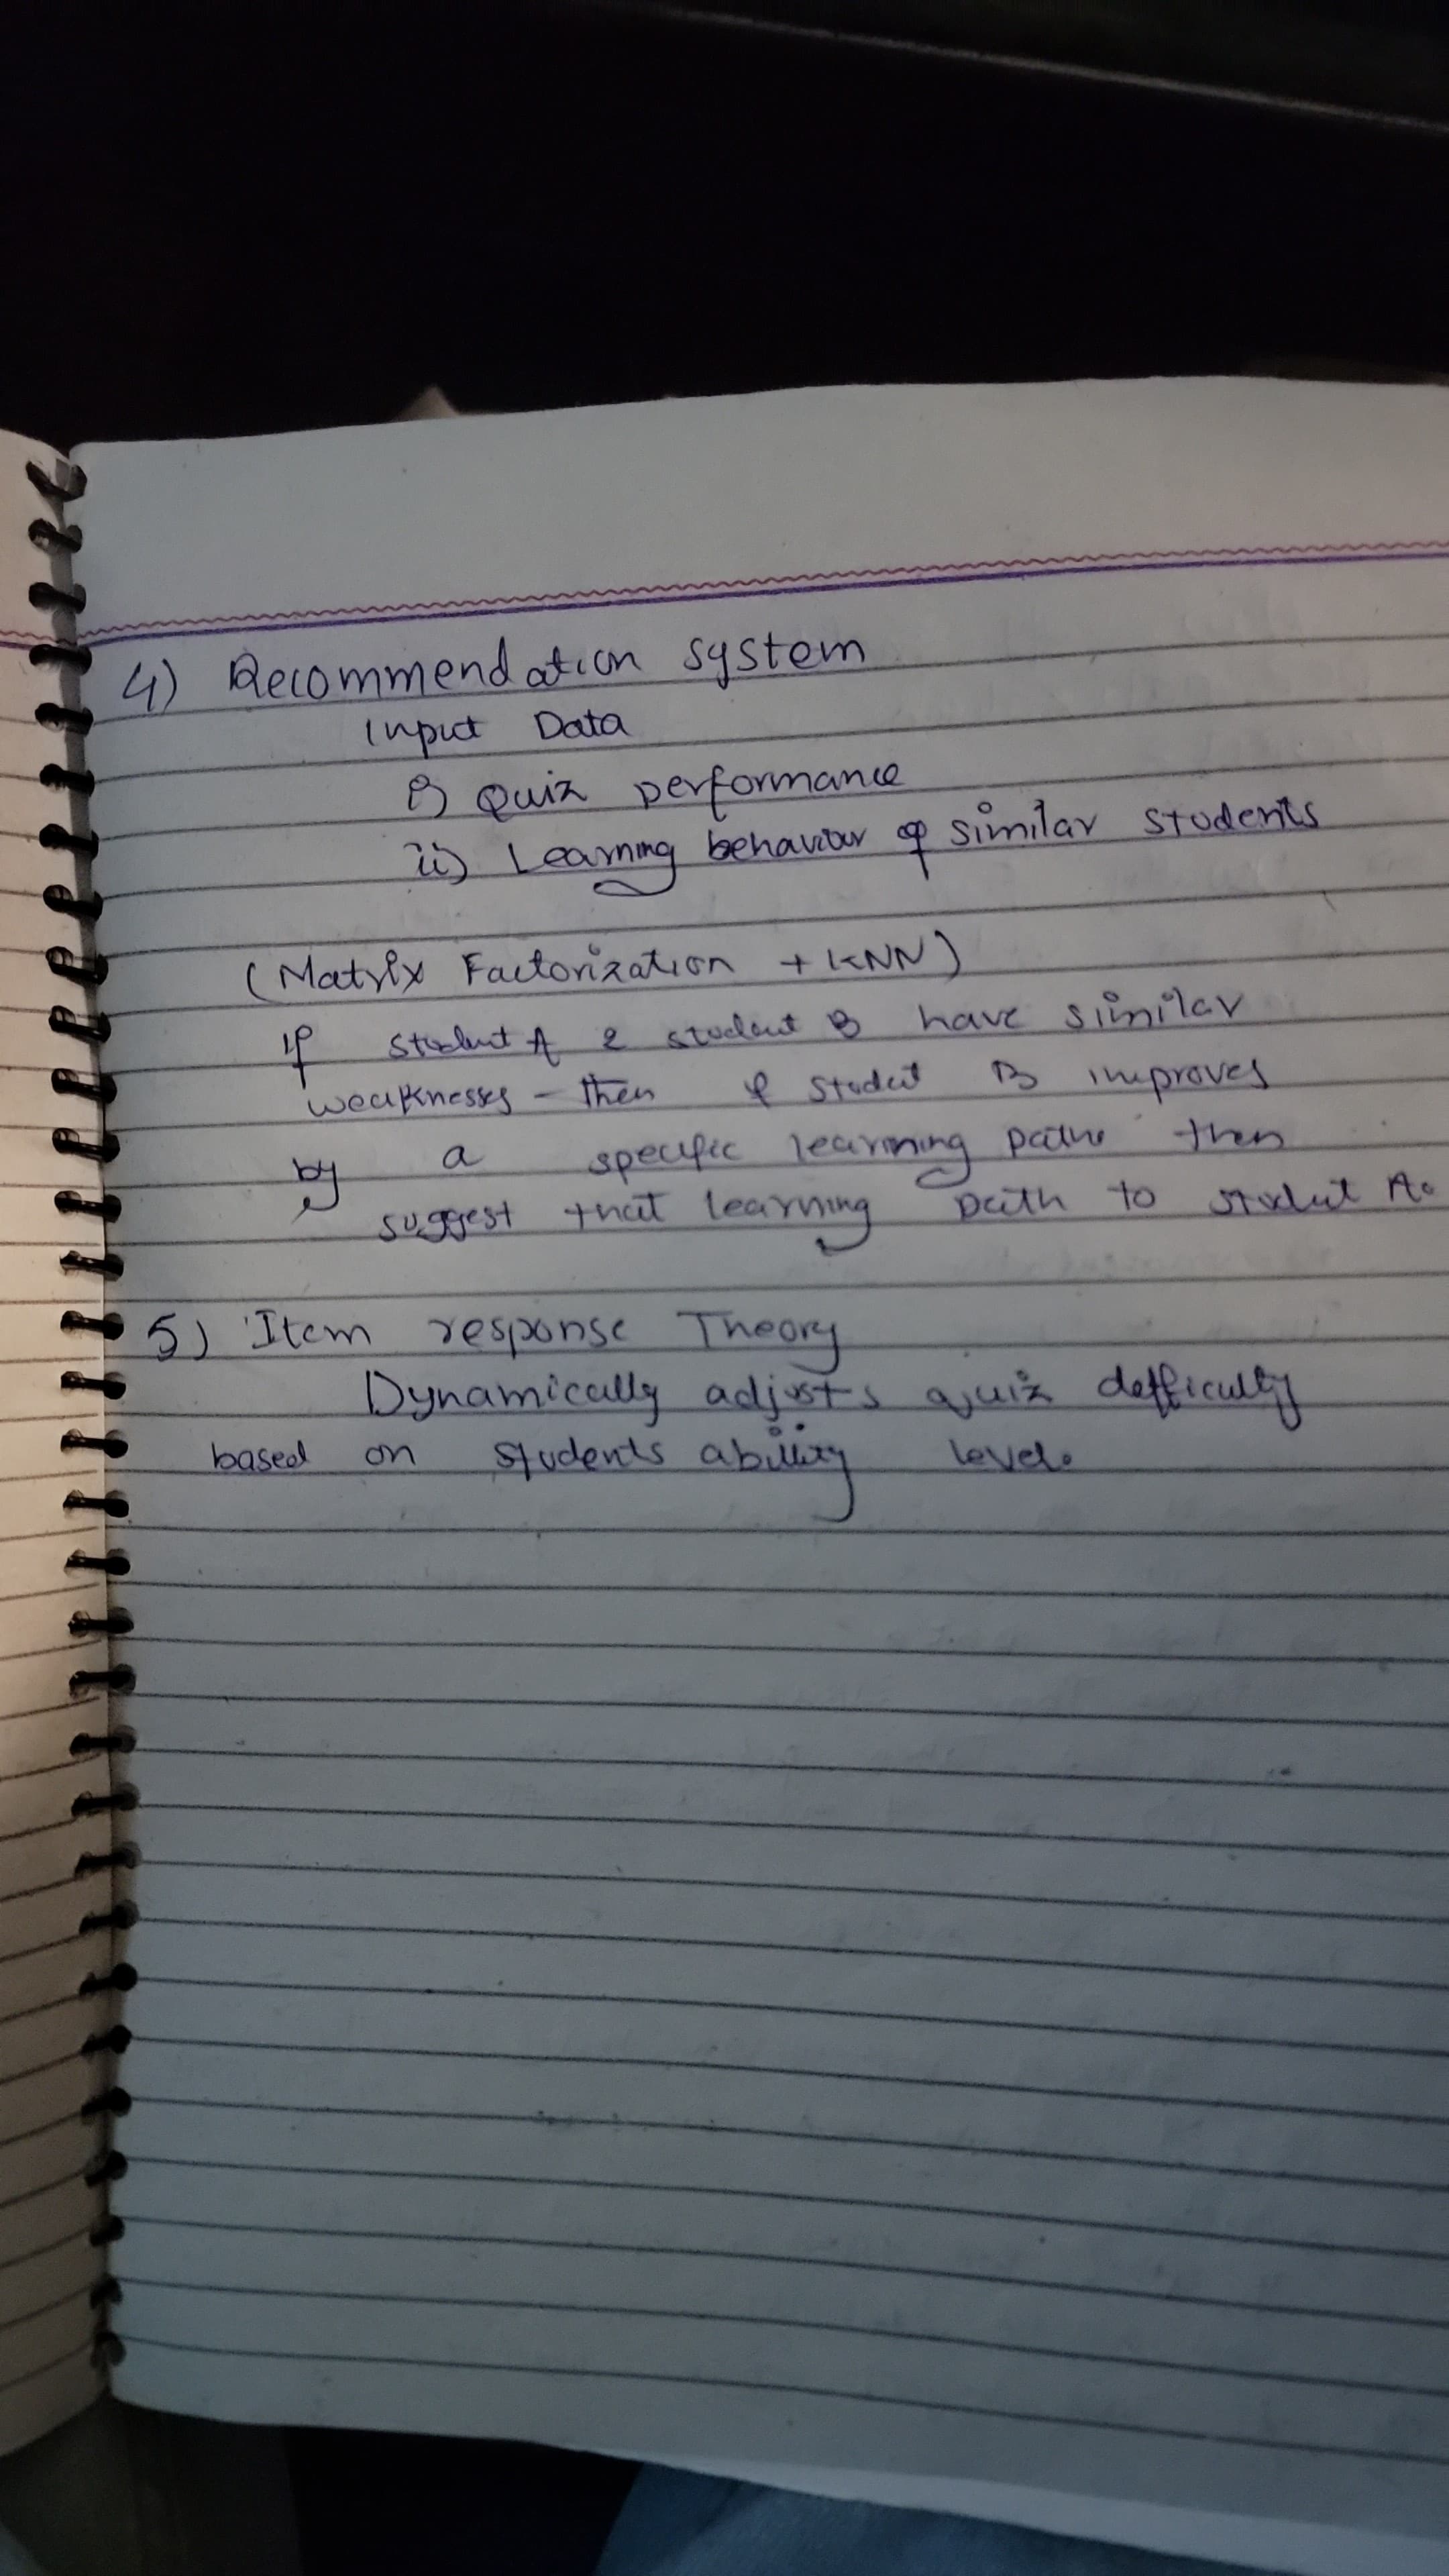 4) Recommendation system
Input Data
i) Quiz performance
ii) Learning behaviour of similar students
(Matrix Factorization + KNN)
If student A & student B have similar
weaknesses - then if student B improves
by a specific learning path then
suggest that learning path to student A.
5) Item response Theory
Dynamically adjusts quiz defficulty
based on students ability level.